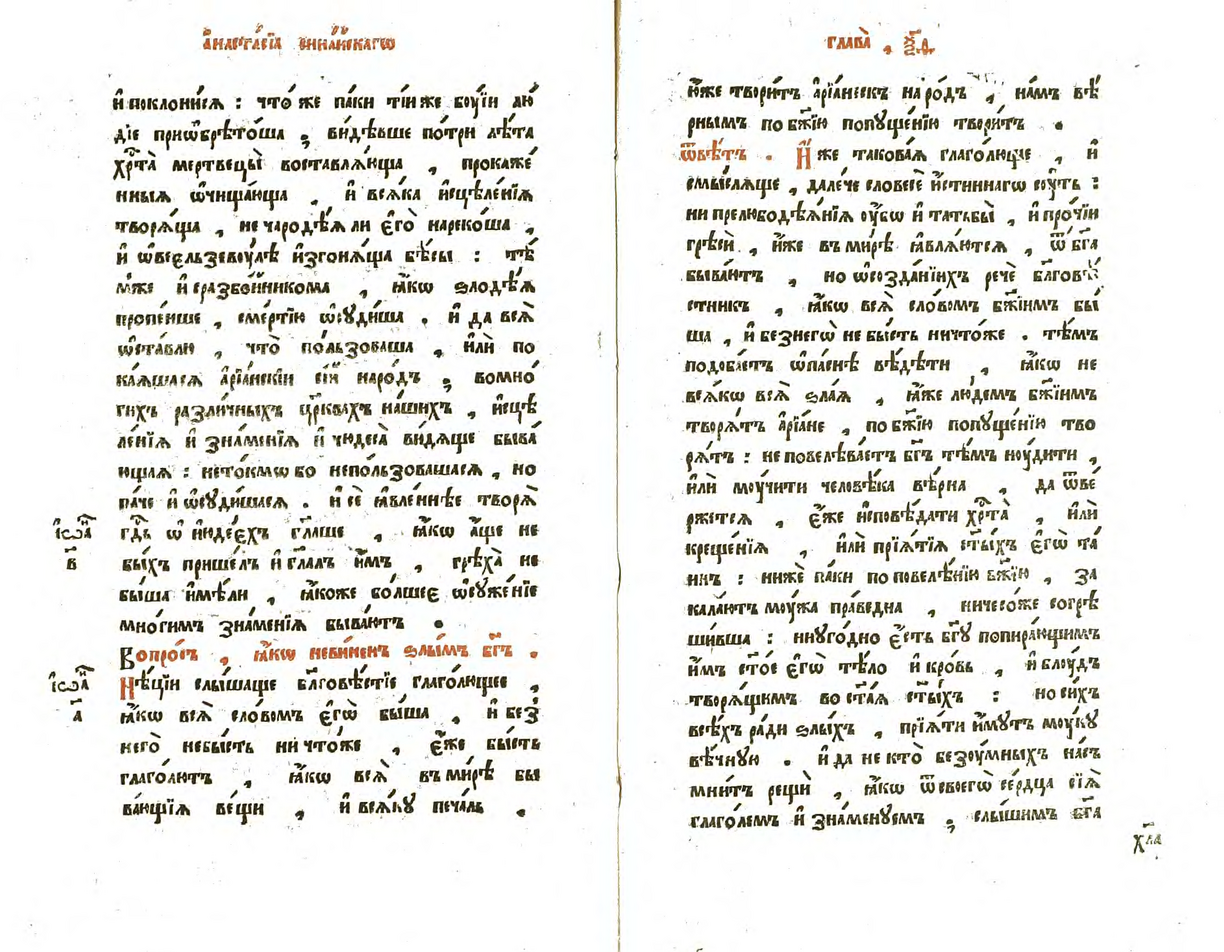 а҆наста́сїа сина́искагѡ
и҆поклони́сѧ : что́ же па́ки ті́и же боу́їи лю́
дїе приѡ҆брѣто́ша ; ви́дѣвше по́ три лѣ́та
хрⷭ҇та̀ мертвецы̀ воставлѧ́юща , прокаже́
нныѧ ѡ҆чища́юща , и҆ всѧ́ка и҆сцѣле́нїѧ
творѧ́ща , не чародѣ́ѧ ли є҆го̀ нареко́ша ,
и҆ ѡ҆веельзеву́лѣ и҆згонѧ́ща бѣ́сы : тѣ́
мже и҆ сразбо́иникома , ꙗ҆́кѡ ѕлодѣ́ѧ
пропе́нше , сме́ртїю ѡ҆суди́ша . и҆ да всѧ̀
ѡ҆ста́влю , что̀ по́льзоваша , и҆лѝ по
ка́ѧшасѧ а҆рїа́нскїи се́й наро́дъ ; вомно́
гихъ разли́чныхъ цр҃квахъ на́шихъ , и҆сцѣ
ле́нїѧ и҆ зна́менїѧ и҆ чюдеса̀ ви́дѧще быва́
ющаѧ : нето́кмѡ бо непо́льзовашасѧ , но
па́че и҆ ѡ҆суди́шасѧ . и҆ се́ ꙗ҆вле́ннѣе творѧ̀
гдⷭ҇ь ѡ҆ и҆юде́ехъ гл҃аше , ꙗ҆́кѡ а҆́ще не
бы́хъ прише́лъ и҆ гл҃алъ и҆̀мъ , грѣ́ха не
бы́ша и҆мѣ́ли , ꙗ҆́коже бо́лшее ѡ҆суже́нїе
мно́гимъ зна́менїѧ быва́ютъ .
і҆ѡа҃
в҃
Вопро́съ , ꙗ҆́кѡ непови́ненъ ѕлы́мъ бг҃ъ .
Нѣ́цїи слы́шаще бл҃говѣ́стїе глаго́лющее ,
ꙗ҆́кѡ всѧ̀ сло́вомъ є҆гѡ̀ бы́ша , и҆ без̾
него̀ небы́сть ничто́же , є҆́же бы́сть
глаго́лютъ , ꙗ҆́кѡ всѧ̀ въ ми́рѣ бы
ва́ющїѧ ве́щи , и҆ всѧ́ку печа́ль ,
і҆ѡа҃
а҃
глава̀ ,
ю҆́же твори́тъ а҆рїа́нескъ наро́дъ , на́мъ вѣ́
рнымъ по бж҃їю попуще́нїю твори́тъ .
ѿвѣ́тъ . И҆̀же такова́ѧ глаго́люще , и҆
смы́слѧще , дале́че словесѐ и҆́стиннагѡ су́ть :
ни прелюбодѣѧ́нїѧ оу҆́бѡ и҆ татьбы̀ , и҆ про́чїи
грѣси̂ , и҆́же въ ми́рѣ ꙗ҆влѧ́ютсѧ , ѿ бг҃а
быва́ютъ , но ѡ҆созда́нїихъ речѐ бл҃говѣ́
стникъ , ꙗ҆́кѡ всѧ̀ сло́вомъ бж҃їимъ бы́
ша , и҆ безнегѡ̀ не бы́сть ничто́же . тѣ́мъ
подоба́етъ ѡ҆па́снѣ вѣ́дѣти , ꙗ҆́кѡ не
всѧ́кѡ всѧ̀ ѕла́ѧ , ꙗ҆́же лю́демъ бж҃їимъ
творѧ́тъ а҆рїа́не , по бж҃їю попуще́нїю тво
рѧ́тъ : не повелѣва́етъ бг҃ъ тѣ́мъ ноу́дити ,
и҆лѝ моу́чити человѣ́ка вѣ́рна , да ѿве́
ржетсѧ , є҆́же и҆сповѣ́дати хрⷭ҇та̀ , и҆лѝ
креще́нїѧ , и҆лѝ прїѧ́тїѧ ст҃ы́хъ є҆гѡ̀ та́
инъ : нижѐ па́ки по повелѣ́нїю бж҃їю , за
кала́ютъ моу́жа пра́ведна , ничесо́же согрѣ
ши́вша : ниуго́дно є҆́сть бг҃у попира́ющимъ
и҆̀мъ ст҃о́е є҆гѡ̀ тѣ́ло и҆ кро́вь , и҆ блоу́дъ
творѧ́щимъ во ст҃а́ѧ ст҃ы́хъ : но си́хъ
всѣ́хъ ра́ди ѕлы́хъ , прїѧ́ти и҆́мутъ моу́ку
вѣ́чную . и҆ да не кто̀ безоу́мныхъ на́съ
мни́тъ рещѝ , ꙗ҆́кѡ ѿсвоегѡ̀ се́рдца сїѧ̀
глаго́лемъ и҆ зна́менуемъ ; слы́шимъ бг҃а